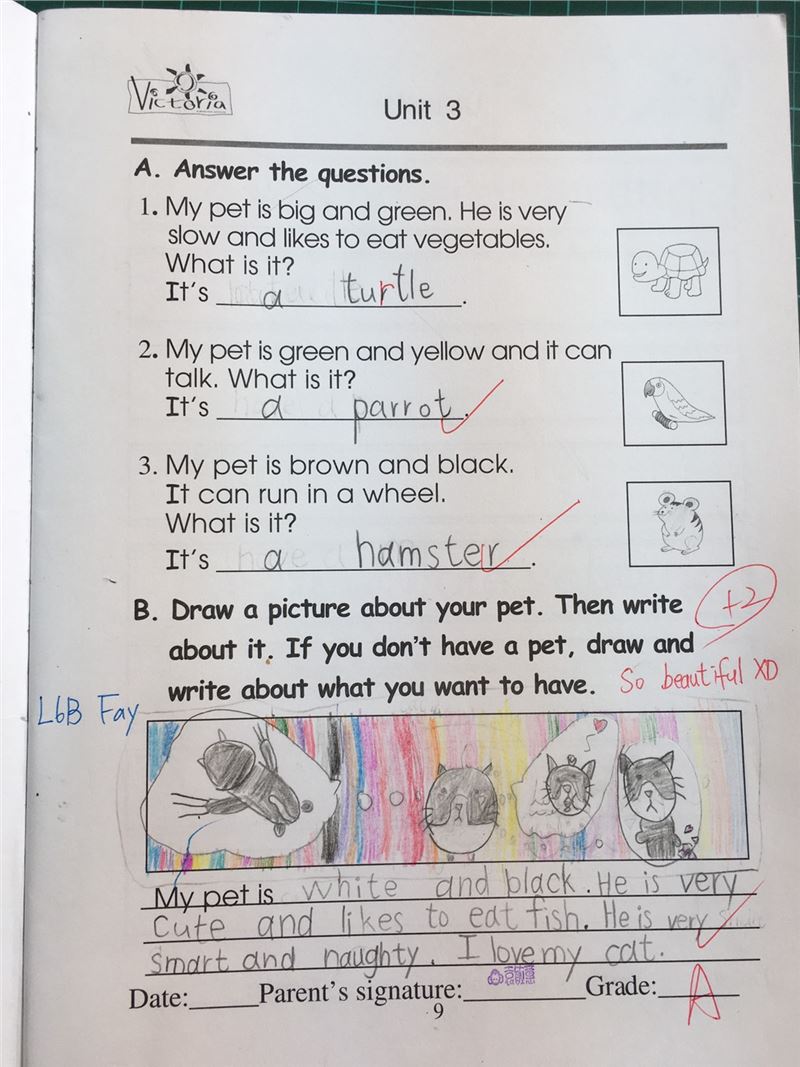 Victoria
Unit 3
A. Answer the questions.
1. My pet is big and green. He is very
slow and likes to eat vegetables.
What is it?
It's a turtle.
2. My pet is green and yellow and it can
talk. What is it?
It's a parrot.
3. My pet is brown and black.
It can run in a wheel.
What is it?
It's a hamster.
B. Draw a picture about your pet. Then write
about it. If you don't have a pet, draw and
write about what you want to have.
+2
So beautiful XD
L6B Fay
My pet is white and black. He is very
cute and likes to eat fish. He is very
smart and naughty. I love my cat.
Date: Parent's signature: Grade: A
9